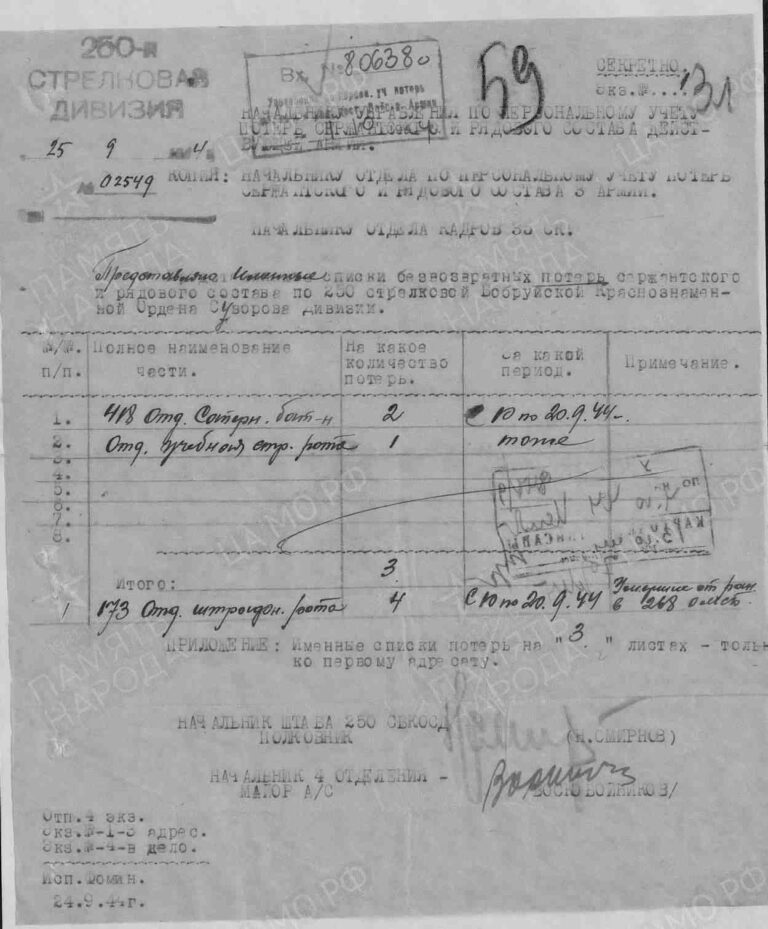 250-я
СТРЕЛКОВАЯ
ДИВИЗИЯ
Вх. № 806380
59
СЕКРЕТНО.
Экз.№ 1
31
НАЧАЛЬНИКУ УПРАВЛЕНИЯ ПО ПЕРСОНАЛЬНОМУ УЧЕТУ
ПОТЕРЬ СЕРЖАНТСКОГО И РЯДОВОГО СОСТАВА ДЕЙСТ-
ВУЮЩЕЙ АРМИИ.
25 9 4
№ 02549
КОПИЯ: НАЧАЛЬНИКУ ОТДЕЛА ПО ПЕРСОНАЛЬНОМУ УЧЕТУ ПОТЕРЬ
СЕРЖАНТСКОГО И РЯДОВОГО СОСТАВА 3 АРМИИ.
НАЧАЛЬНИКУ ОТДЕЛА КАДРОВ 35 СК.
Представляю Именные списки безвозвратных потерь сержантского
и рядового состава по 250 стрелковой Бобруйской Краснознамен-
ной Ордена Суворова дивизии.
№/№. п/п. Полное наименование части. На какое количество потерь. За какой период. Примечание.
1. 418 Отд. Саперн. бат-н 2 с 10 по 20.9.44.
2. Отд. учебная стр. рота 1 тоже
3.
4.
5.
6.
7.
8.
Итого: 3
1 173 Отд. штрафн. рота 4 С 10 по 20.9.44 Умершие от ран в 268 омсб.
ПРИЛОЖЕНИЕ: Именные списки потерь на "3" листах - толь-
ко первому адресату.
НАЧАЛЬНИК ШТАБА 250 СБКОСД
ПОЛКОВНИК (Н.СМИРНОВ)
НАЧАЛЬНИК 4 ОТДЕЛЕНИЯ -
МАЙОР А/С ВОСКОБОЙНИКОВ/
Отп.4 экз.
Экз.№-1-3 адрес.
Экз.№-4-в дело.
Исп.Фомин.
24.9.44г.